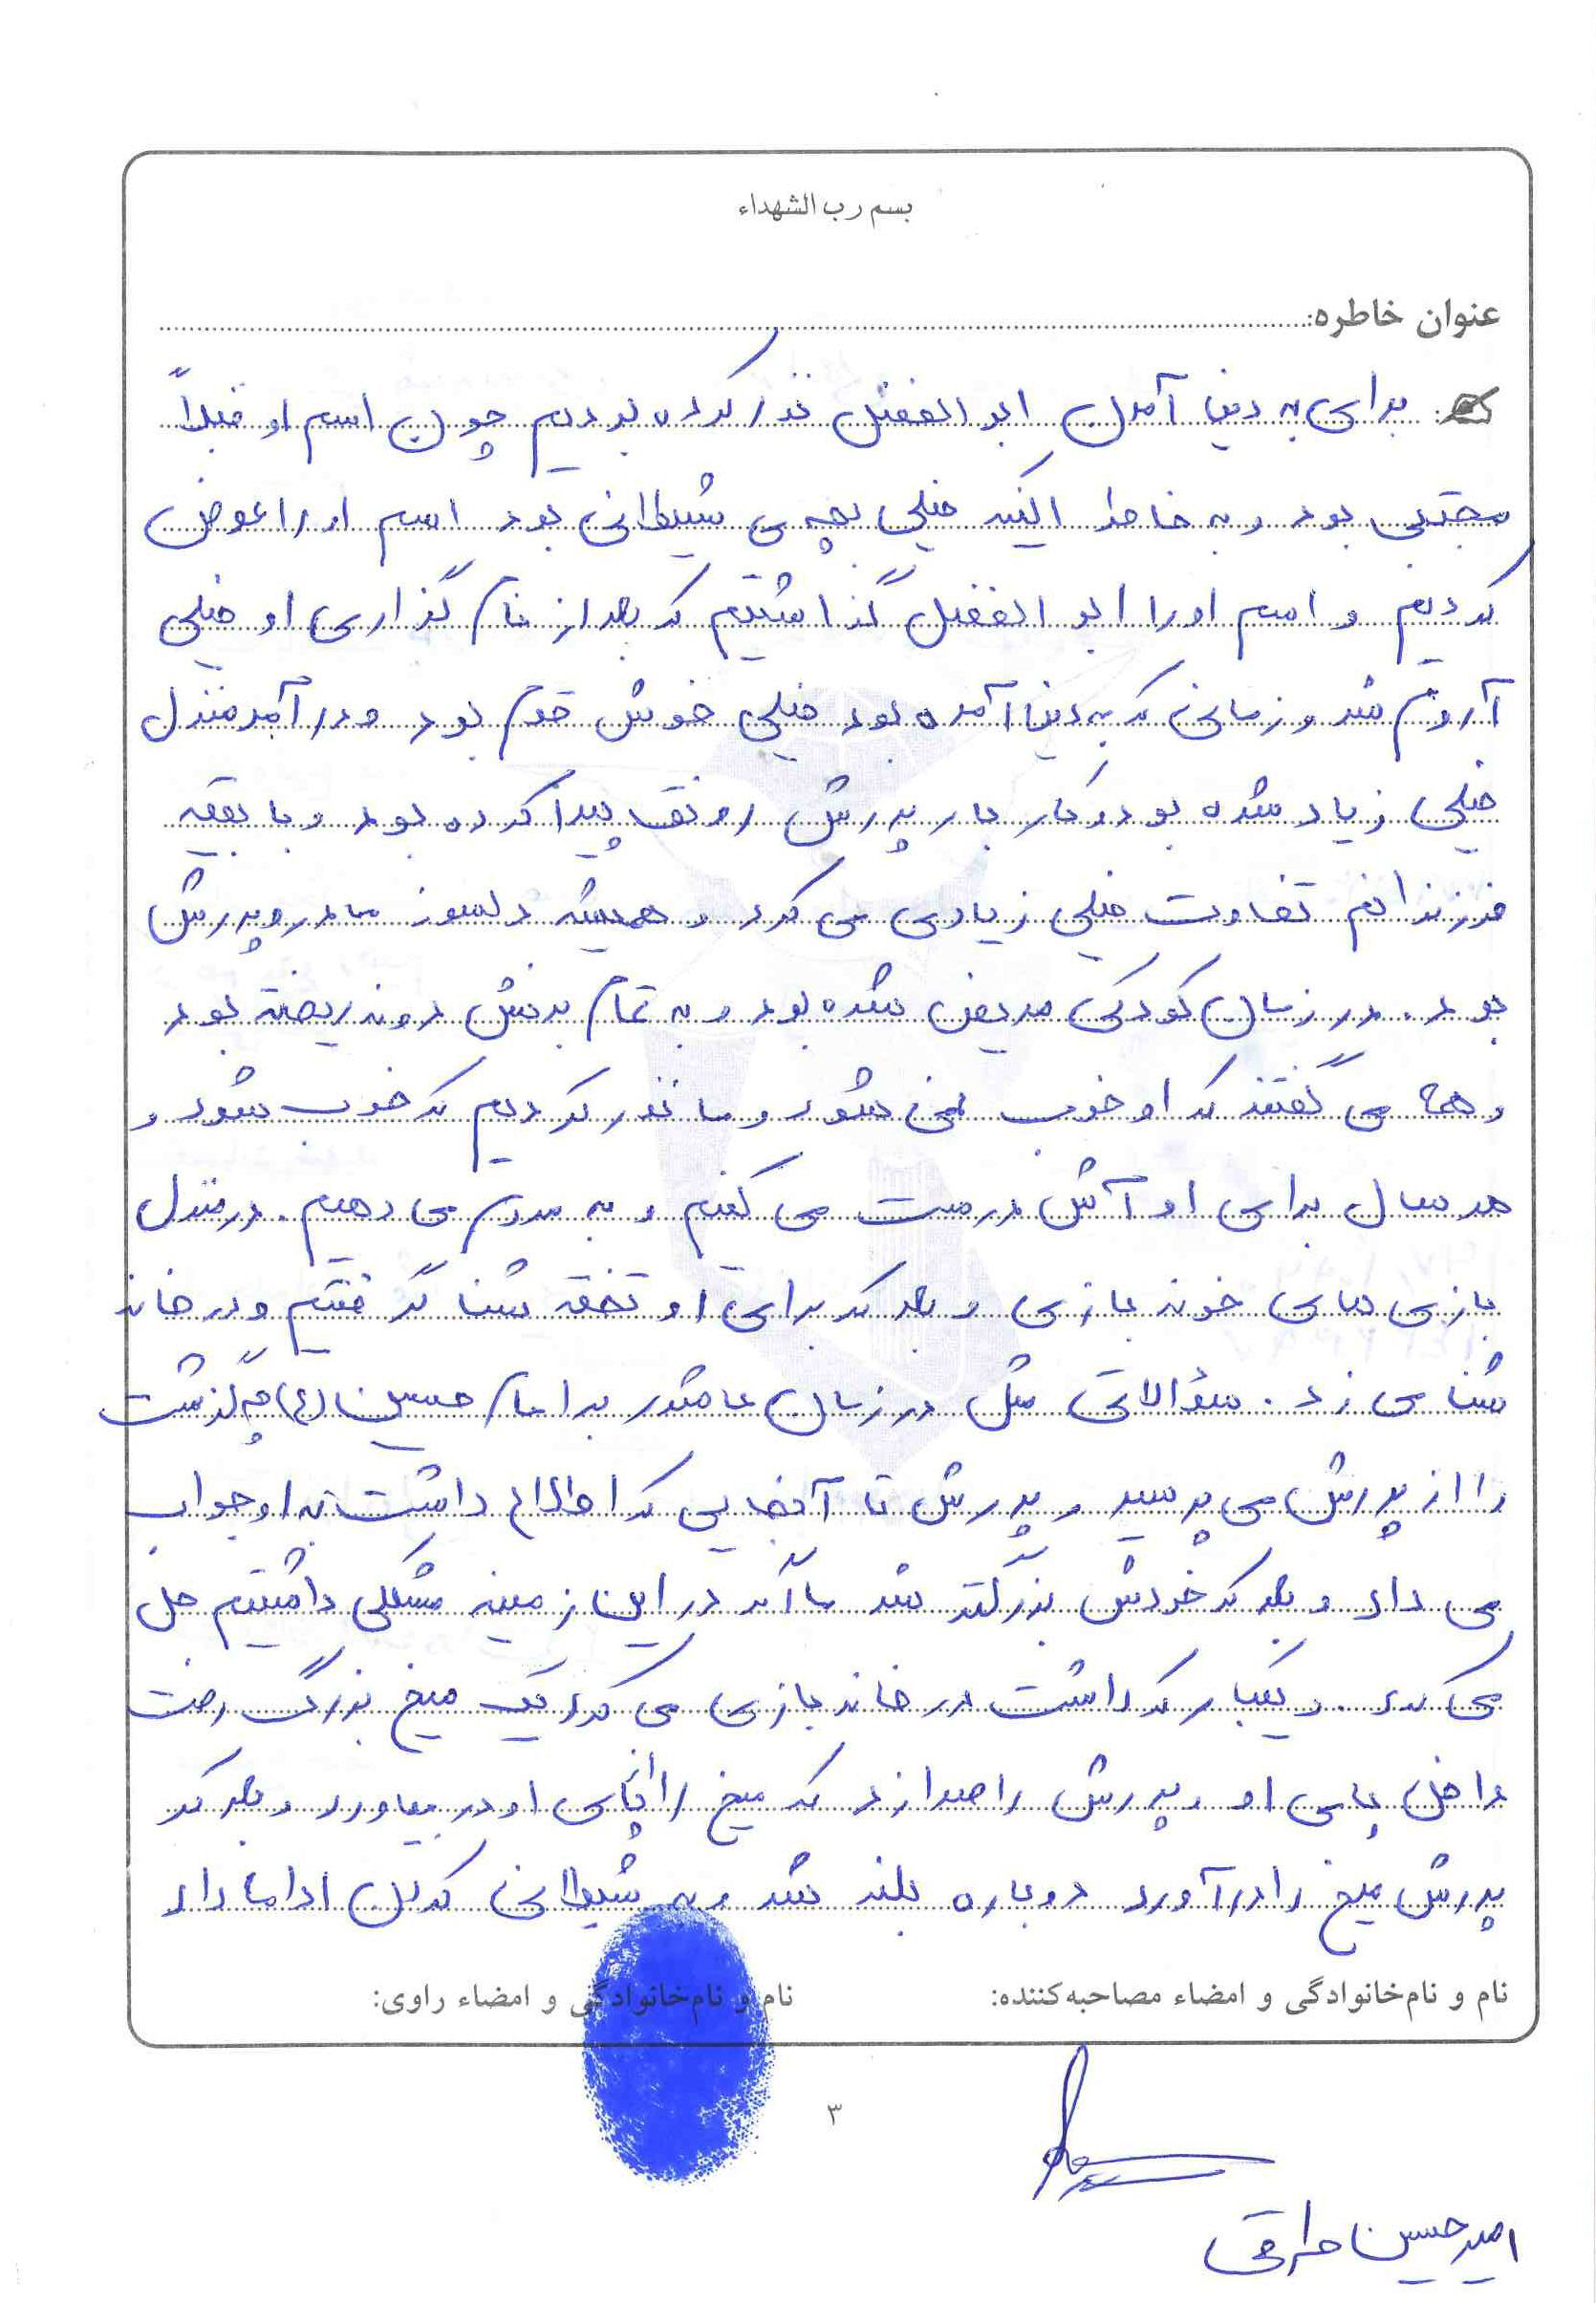 بسم رب الشهداء
عنوان خاطره:
برای به دنیا آمدن ابوالفضل نذر کرده بودیم چون اسم او قبلاً
مجتبی بود و به خاطر اینکه خیلی بچه ی شیطانی بود اسم او را عوض
کردیم و اسم او را ابوالفضل گذاشتیم که بعد از نام گذاری او خیلی
آروم شد و زمانی که به دنیا آمده بود خیلی خوش قدم بود و درآمد منزل
خیلی زیاد شده بود و کار بار پدرش رونق پیدا کرده بود و با بقیه
فرزندانم تفاوت خیلی زیادی می کرد و همیشه دلسوز مادر و پدرش
بود. در زمان کودکی مریض شده بود و به تمام بدنش دونه ریخته بود
و همه می گفتند که او خوب نمی شود و ما نذر کردیم که خوب شود و
هر سال برای او آش درست می کنیم و به مردم می دهیم. در منزل
بازی های خونه بازی و بعد که برای او تخته شنا گرفتیم و در خانه
شنا می زد. سؤالاتی مثل در زمان عاشورا بر امام حسین (ع) چه گذشت
را از پدرش می پرسید و پدرش تا آنجایی که اطلاع داشت به او جواب
می داد و بعد که خودش بزرگتر شد ما اگر در این زمینه مشکلی داشتیم حل
می کرد. و یکبار که داشت در خانه بازی می کرد یک میخ بزرگ رفت
داخل پای او و پدرش را صدا زد که میخ را از پای او در بیاورد و بعد که
پدرش میخ را در آورد دوباره بلند شد و به شیطانی کردن اداما داد
نام و نام‌خانوادگی و امضاء مصاحبه‌کننده:
نام و نام‌خانوادگی و امضاء راوی:
۳
امیرحسین